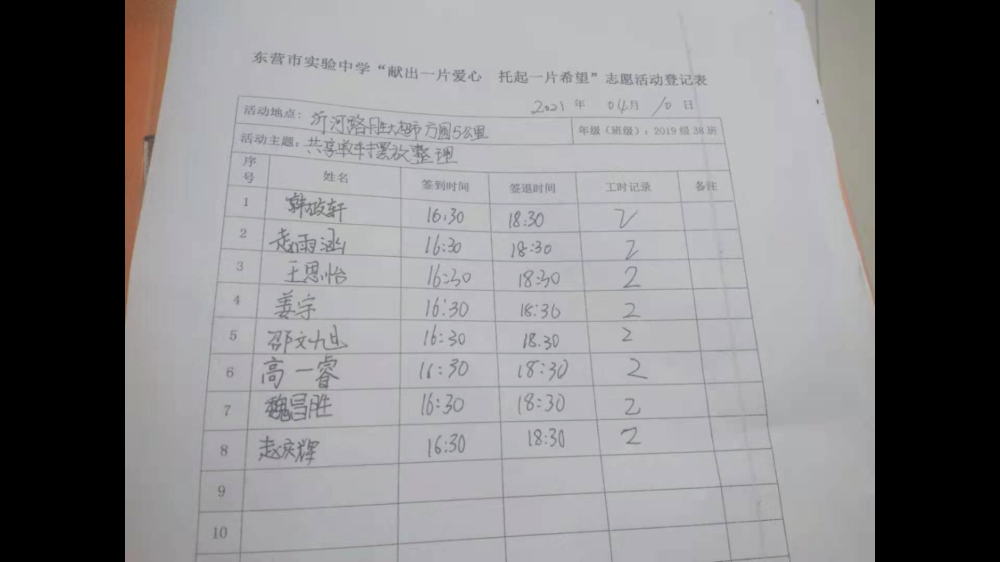 东营市实验中学“献出一片爱心 托起一片希望”志愿活动登记表
2021 年 04月 10 日
活动地点: 沂河路胜大超市方圆5公里 年级(班级): 2019 级 38 班
活动主题: 共享单车摆放整理
序号 姓名 签到时间 签退时间 工时记录 备注
1 韩政轩 16:30 18:30 2
2 赵雨涵 16:30 18:30 2
3 王思怡 16:30 18:30 2
4 姜宗 16:30 18:30 2
5 邵文旭 16:30 18.30 2
6 高一睿 16:30 18:30 2
7 魏昌胜 16:30 18:30 2
8 赵庆辉 16:30 18:30 2
9
10